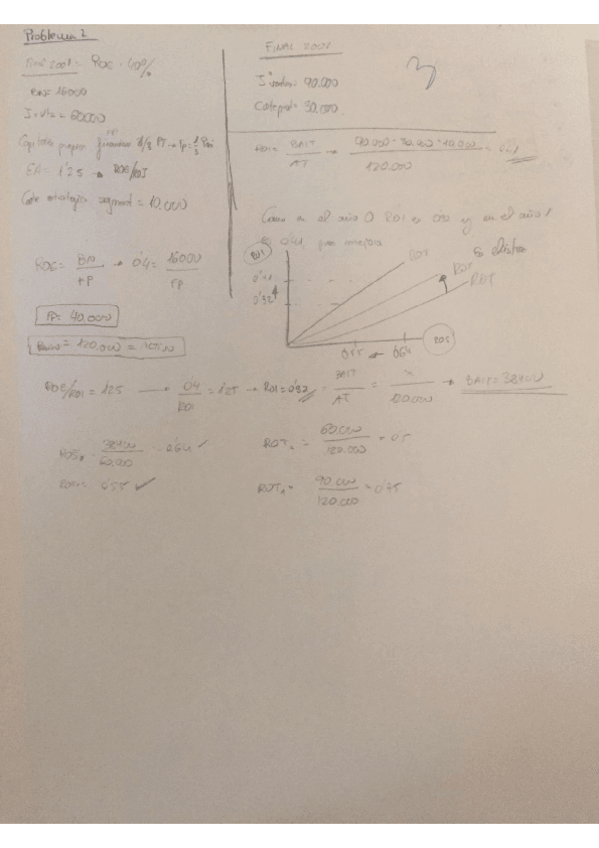 Problema 2
Final 2001 = ROE = 40%
BN = 16000
I. vtas = 60000
Capitales propios financian 1/3 PT → Pp = 1/3 Pasi
EA = 1'25 → ROE/ROI
Coste estrategico segment = 10.000
ROE = BN / FP → 0'4 = 16000 / FP
FP = 40.000
= 120.000 =
FINAL 2002
I. ventas = 90.000
Cote gral = 30.000
3
ROI = BAIT / AT → 90.000 - 30.000 - 10.000 / 120.000 =
Como en el año 0 ROI es 0'32 y en el año 1
es 0'41, pues mejora
ROI
0'41
0'32
ROT
ROT
ROT
Es elástica
0'55
0'64
ROS
ROE/ROI = 1'25 → 0'4 / ROI = 1'25 → ROI = 0'32 = BAIT / AT = x / 120.000 → BAIT = 38400
ROS0 = 38400 / 60.000 = 0'64 ✓
ROT0 = 60.000 / 120.000 = 0'5
ROS1 = 0'55 ✓
ROT1 = 90.000 / 120.000 = 0'75